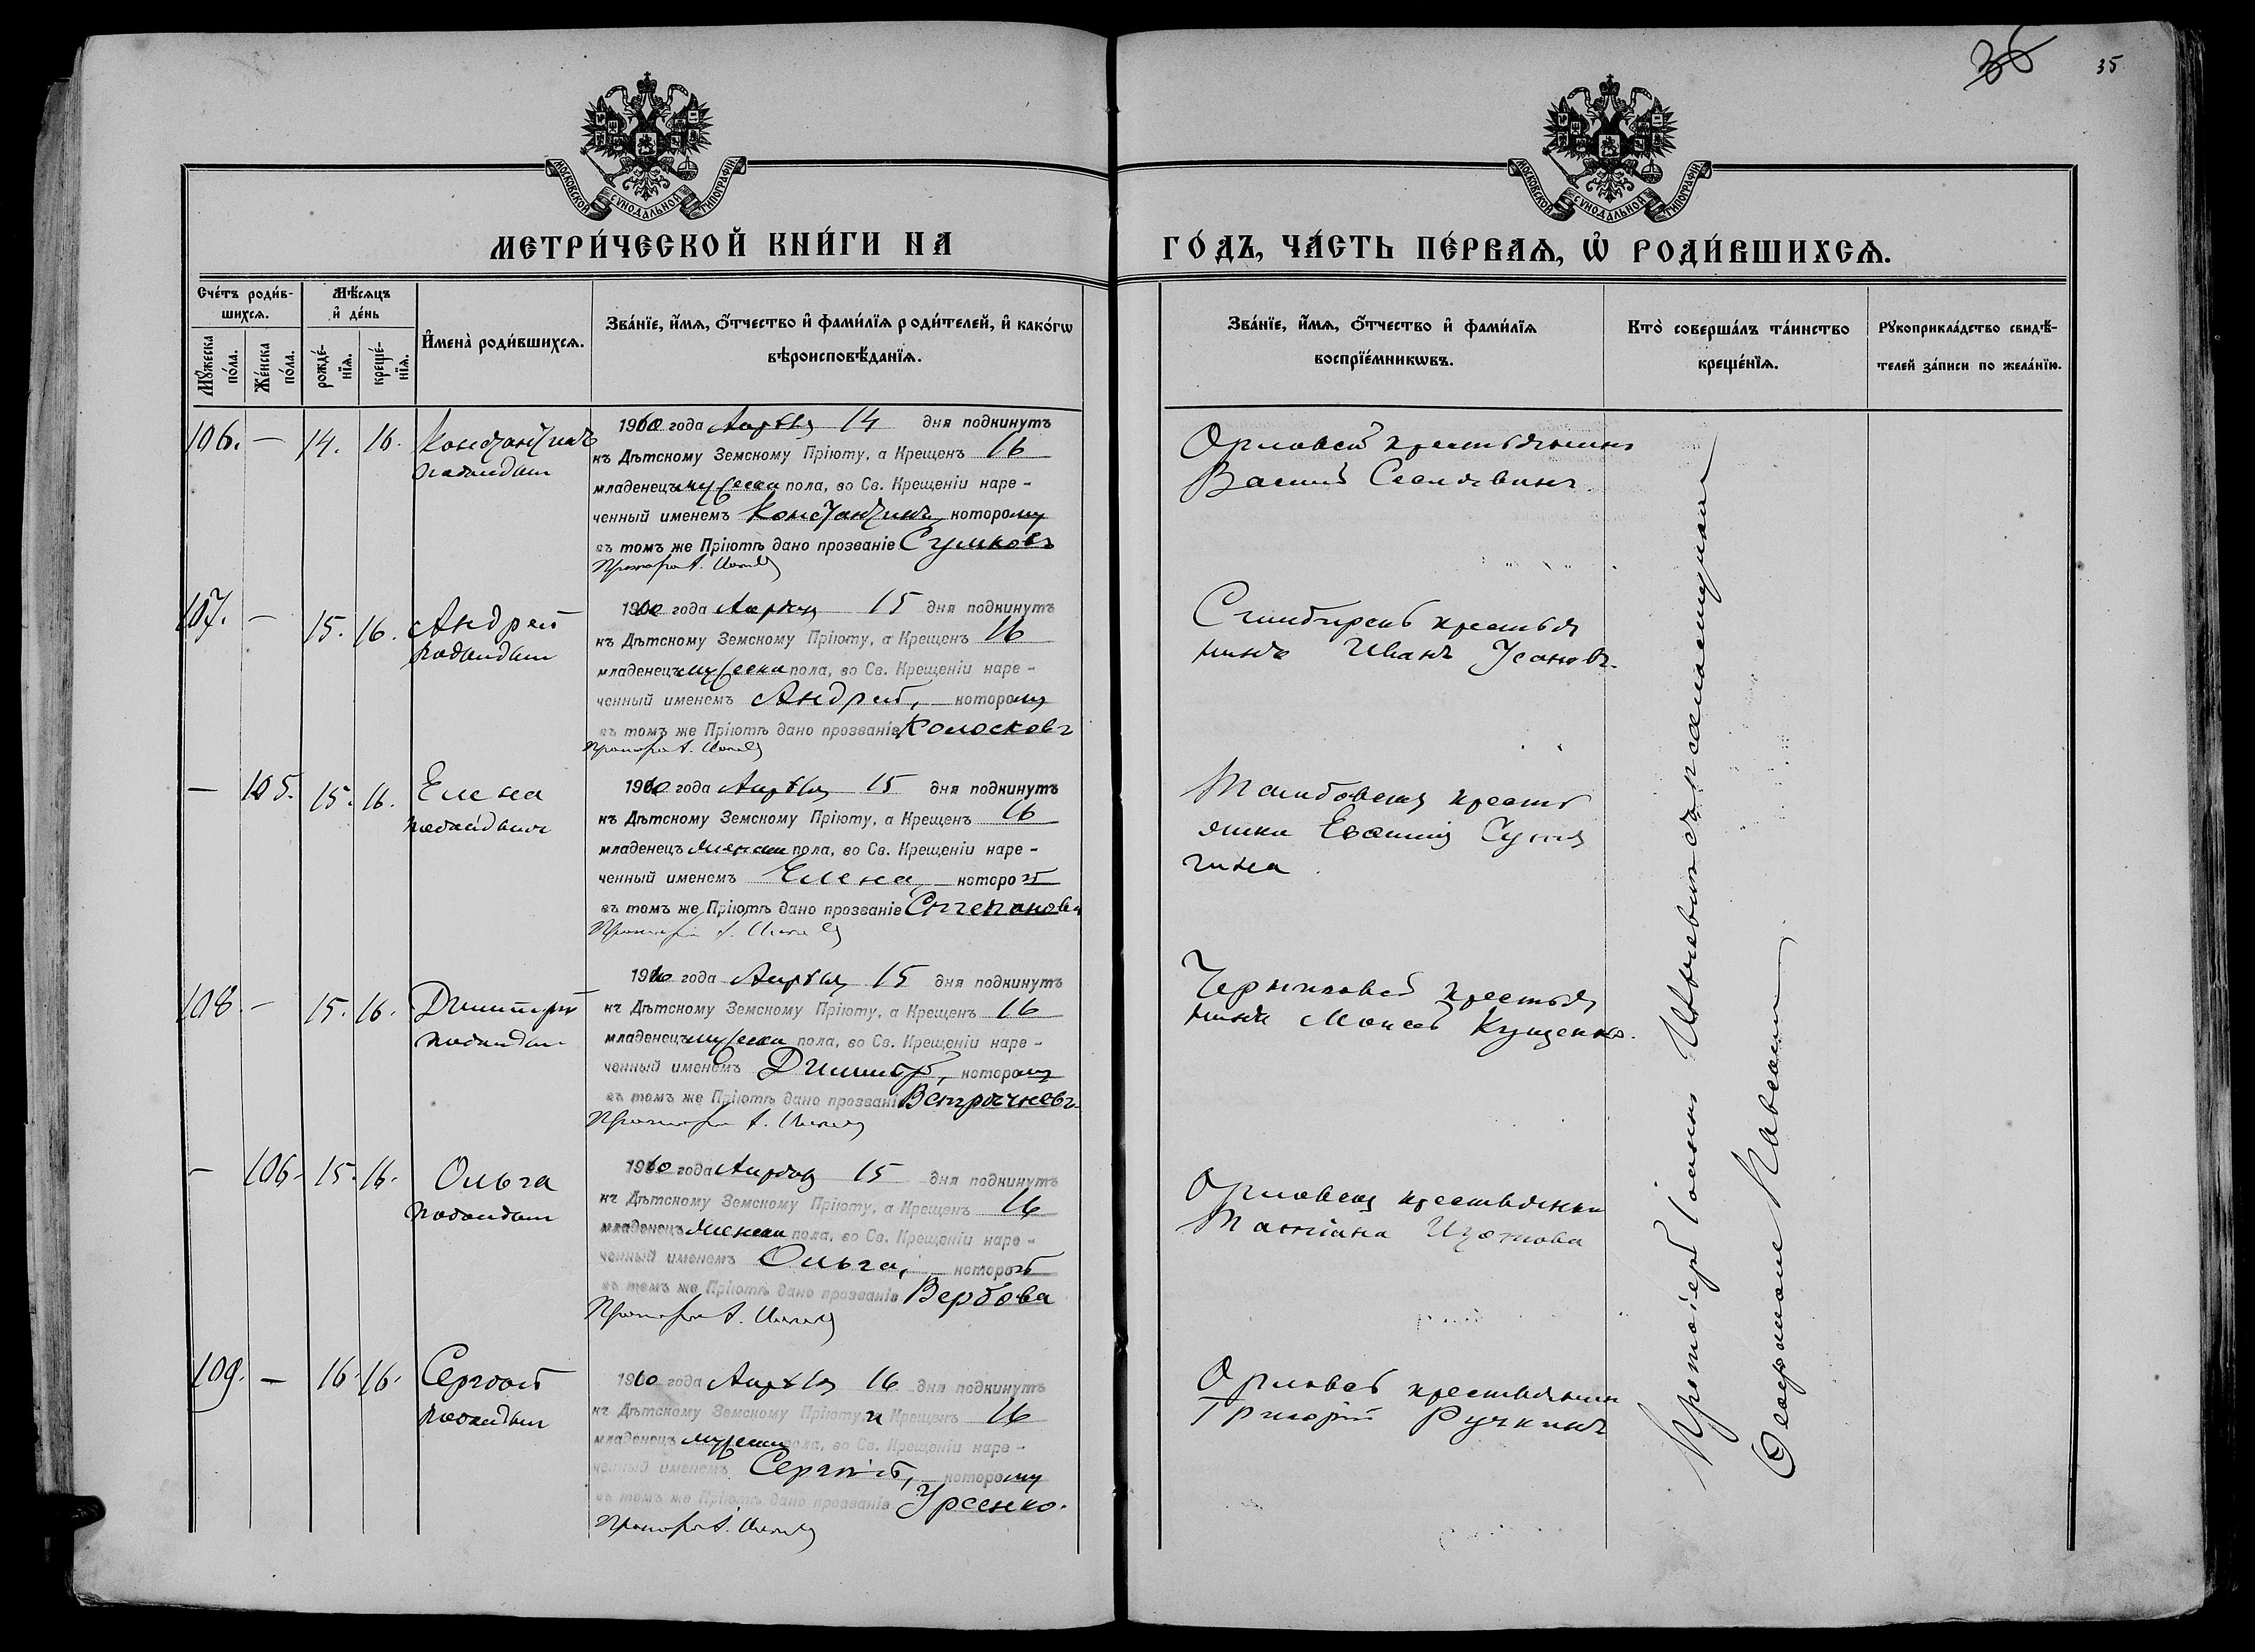 35
МОСКОВСКОЙ СѴНОДАЛЬНОЙ ТИПОГРАФІИ
МОСКОВСКОЙ СѴНОДАЛЬНОЙ ТИПОГРАФІИ
МЕТРИ́ЧЕСКОЙ КНИ́ГИ НА
ГО́ДЪ, ЧА́СТЬ ПЕ́РВАѦ, Ѡ҆ РОДИ́ВШИХСѦ.
Сче́тъ роди́в-
шихсѧ.
Мꙋ́жеска по́ла.
Же́нска по́ла.
Мѣ́сѧцъ
и҆ де́нь
рожде́нїѧ.
креще́нїѧ.
И҆мена̀ роди́вшихсѧ.
Зва́нїе, и҆́мѧ, ѻ҆́тчество и҆ фами́лїѧ роди́телей, и҆ како́гѡ
вѣроисповѣ́данїѧ.
Зва́нїе, и҆́мѧ, ѻ҆́тчество и҆ фами́лїѧ
воспрїе́мникѡвъ.
Кто̀ соверша́лъ та́инство
креще́нїѧ.
Рꙋкоприкла́дство свидѣ́-
телей за́писи по жела́нїю.
106. — 14. 16. Константинъ
1910 года Апрѣля 14 дня подкинутъ
къ Дѣтскому Земскому Пріюту, а Крещенъ 16
младенецъ мужеска пола, во Св. Крещеніи наре-
ченный именемъ Константинъ, которому
въ томъ же Пріютѣ дано прозваніе Сумковъ
Орловскій крестьянинъ
Василій
107. — 15. 16. Андрей
1910 года Апрѣля 15 дня подкинутъ
къ Дѣтскому Земскому Пріюту, а Крещенъ 16
младенецъ мужеска пола, во Св. Крещеніи наре-
ченный именемъ Андрей, которому
въ томъ же Пріютѣ дано прозваніе Колосковъ
Симбирскій крестья
нинъ Иванъ Усановъ.
— 105. 15. 16. Елена
1910 года Апрѣля 15 дня подкинутъ
къ Дѣтскому Земскому Пріюту, а Крещенъ 16
младенецъ женска пола, во Св. Крещеніи наре-
ченный именемъ Елена, которой
въ томъ же Пріютѣ дано прозваніе Степанова
Тамбовская кресть
янка
108. — 15. 16. Димитрій
1910 года Апрѣля 15 дня подкинутъ
къ Дѣтскому Земскому Пріюту, а Крещенъ 16
младенецъ мужеска пола, во Св. Крещеніи наре-
ченный именемъ Димитрій, которому
въ томъ же Пріютѣ дано прозваніе Встрѣчневъ
Черниговскій крестья
нинъ Моисей Кущенко.
— 106. 15. 16. Ольга
1910 года Апрѣля 15 дня подкинутъ
къ Дѣтскому Земскому Пріюту, а Крещенъ 16
младенецъ женска пола, во Св. Крещеніи наре-
ченный именемъ Ольга, которой
въ томъ же Пріютѣ дано прозваніе Вербова
Орловская крестьянка
Татіана Изотова
109. — 16. 16. Сергѣй
1910 года Апрѣля 16 дня подкинутъ
къ Дѣтскому Земскому Пріюту, и Крещенъ 16
младенецъ мужеска пола, во Св. Крещеніи наре-
ченный именемъ Сергѣй, которому
въ томъ же Пріютѣ дано прозваніе Урсенко.
Орловскій крестьянинъ
Григорій Ручкинъ
Протоіерей Іоаннъ съ псаломщикомъ